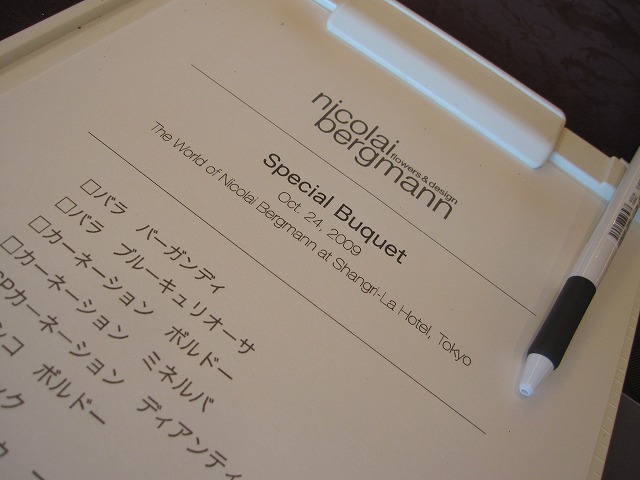 nicolai
bergmann
flowers & design
Special Buquet
Oct. 24, 2009
The World of Nicolai Bergmann at Shangri-La Hotel, Tokyo
□バラ バーガンディ
□バラ ブルーキュリオーサ
□カーネーション ボルドー
□カーネーション ミネルバ
SPカーネーション ディアンティ
シコ ボルドー
ック